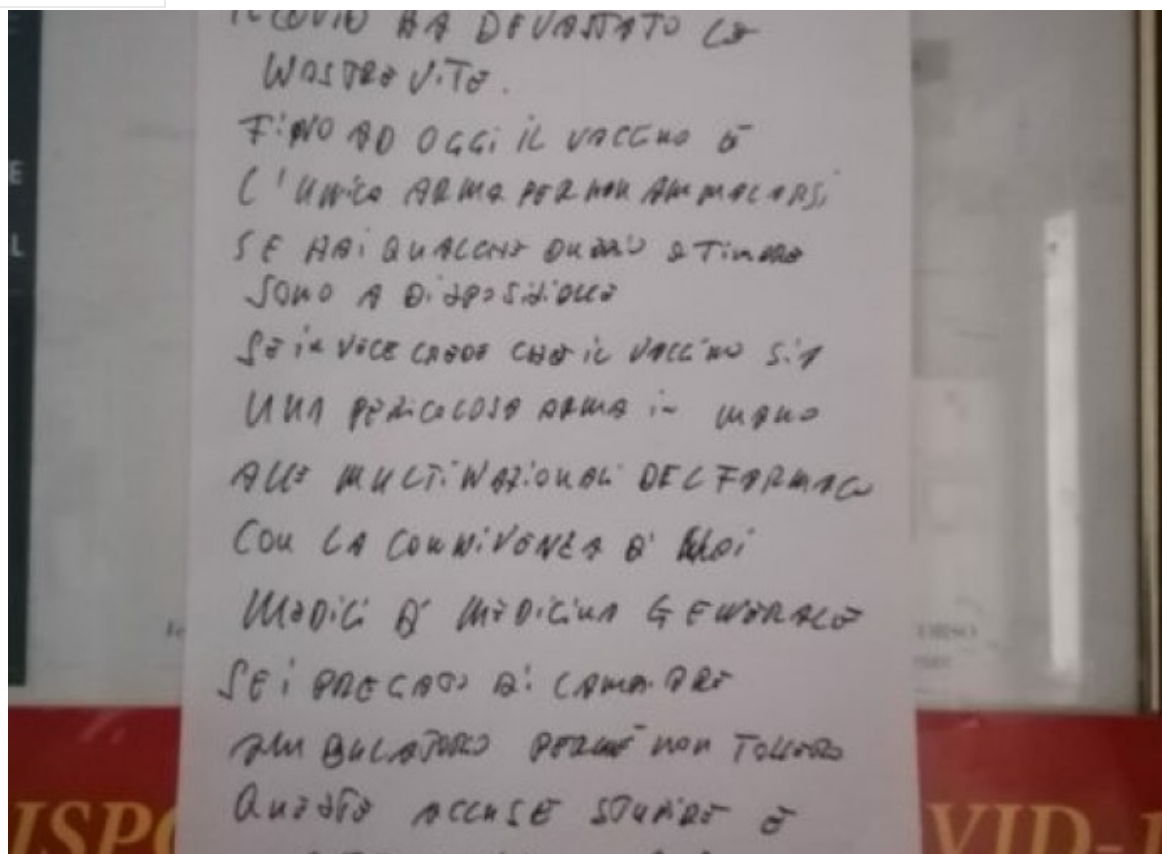 IL COVID HA DEVASTATO LE
NOSTRE VITE.
FINO AD OGGI IL VACCINO È
L'UNICA ARMA PER NON AMMALARSI
SE HAI QUALCHE DUBBIO O TIMORE
SONO A DISPOSIZIONE
SE INVECE CREDI CHE IL VACCINO SIA
UNA PERICOLOSA ARMA IN MANO
ALLE MULTINAZIONALI DEL FARMACO
CON LA CONNIVENZA DI NOI
MEDICI DI MEDICINA GENERALE
SEI PREGATO DI CAMBIARE
AMBULATORIO PERCHÉ NON TOLLERO
QUESTE ACCUSE STUPIDE E
ISPO
VID-1
E
L